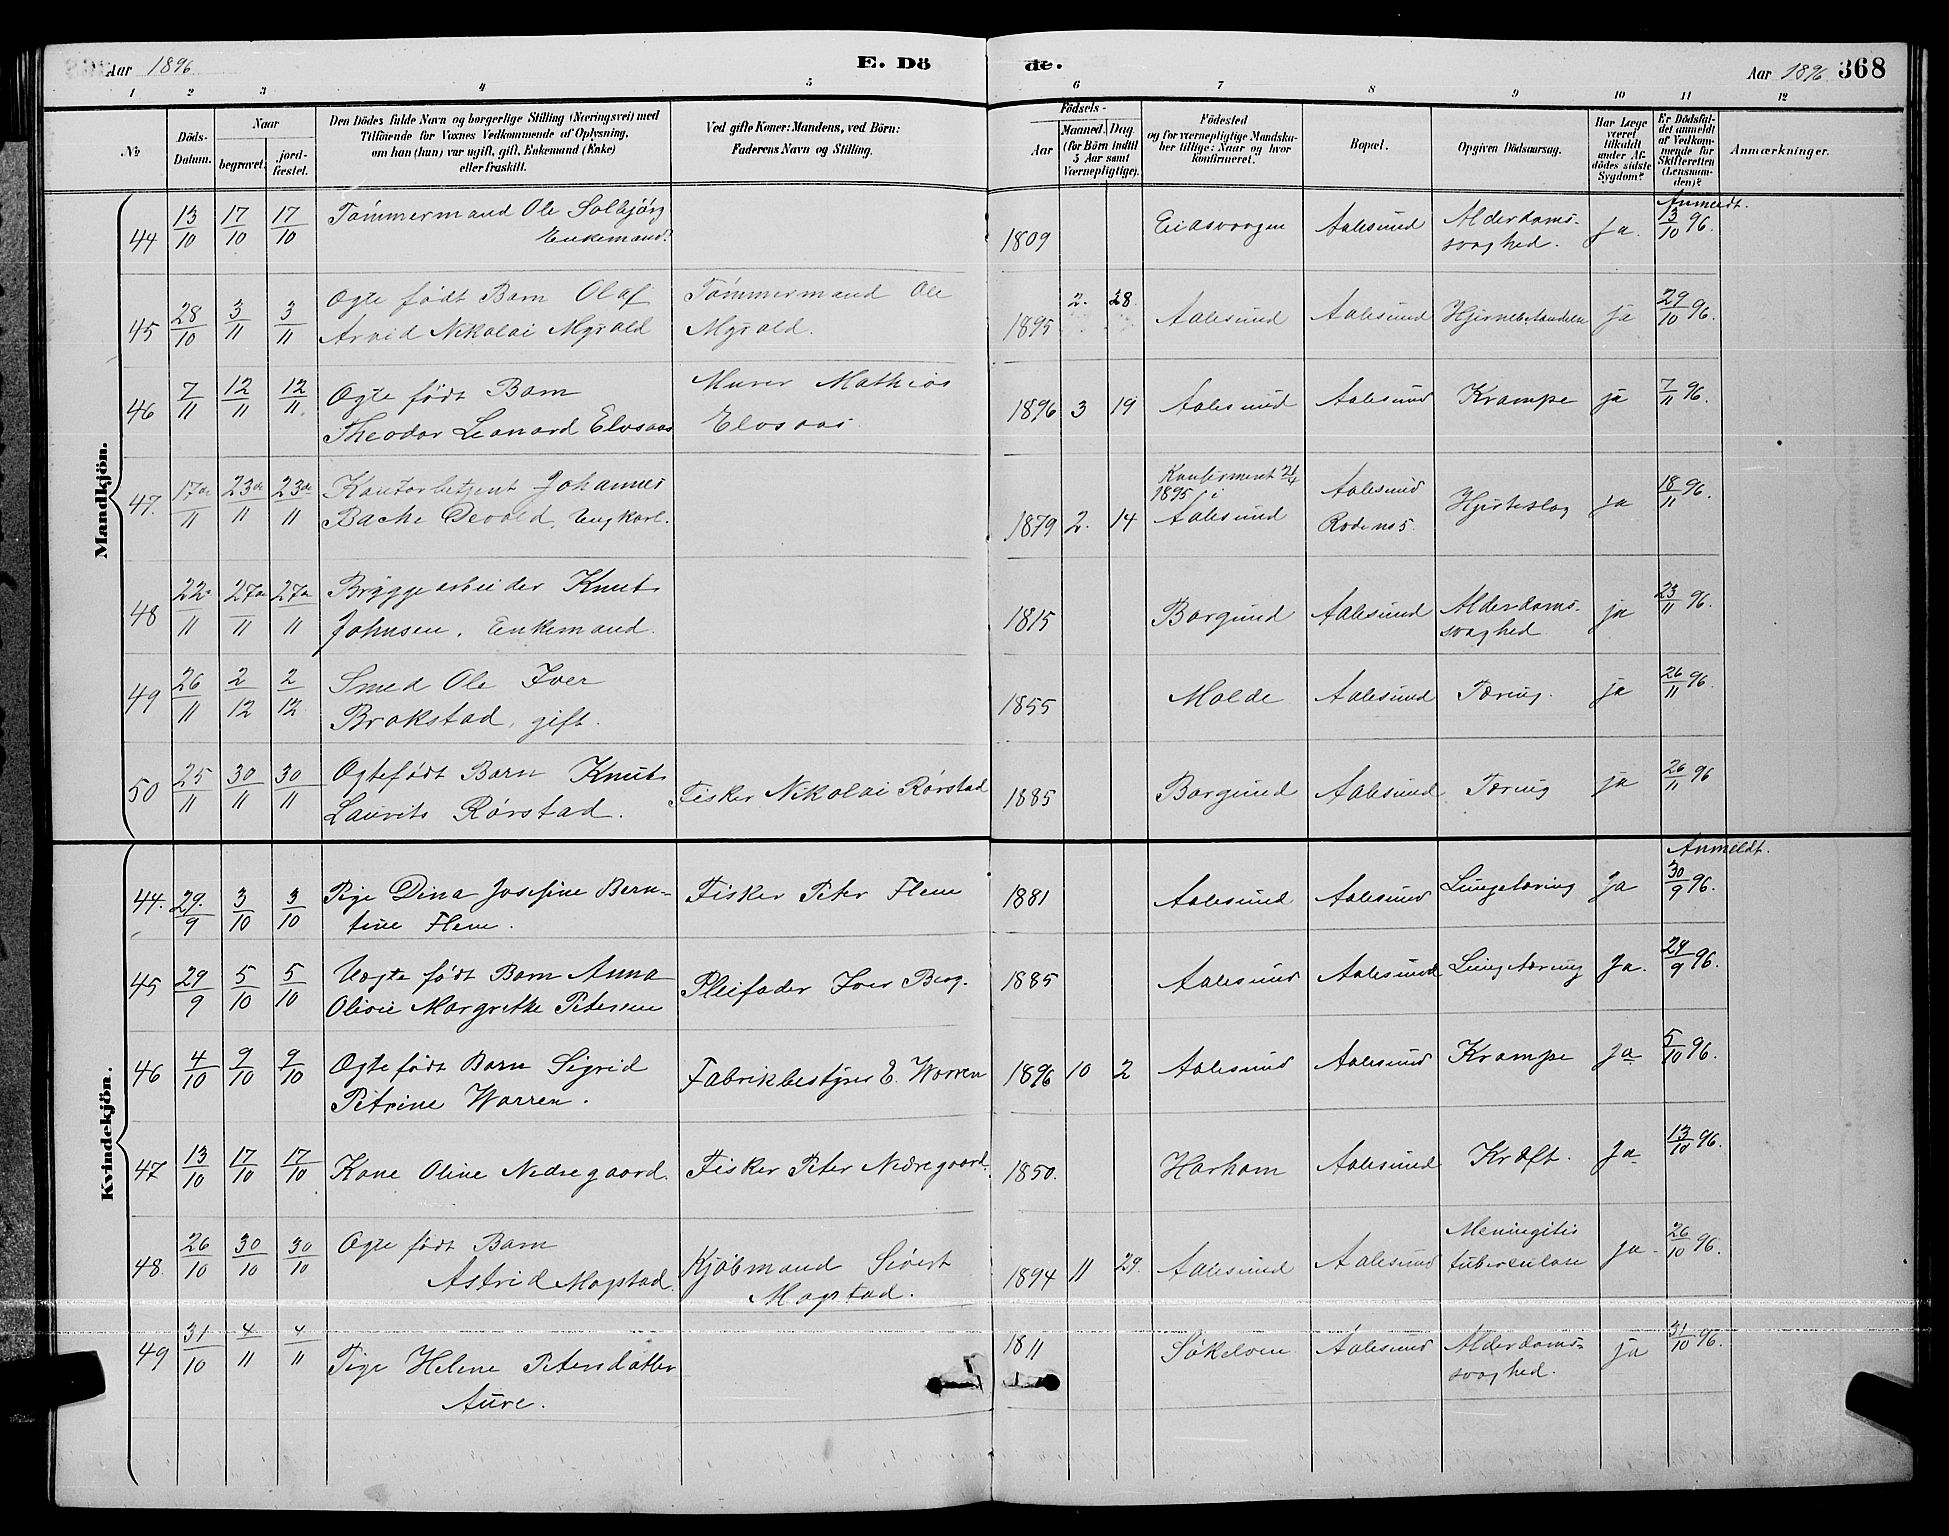 Aar 1896 E. Dö de. Aar 1896 368
1 2 3 4 5 6 7 8 9 10 11 12
№ Döds-Datum. Naar begravet. jord-fæstet. Den Dödes fulde Navn og borgerlige Stilling (Næringsvei) med Tilföiende for Voxnes Vedkommende af Oplysning, om han (hun) var ugift, gift, Enkemand (Enke) eller fraskilt. Ved gifte Koner: Mandens, ved Börn: Faderens Navn og Stilling. Födsels- Aar Maaned. Dag (for Börn indtil 5 Aar samt Værnepligtige). Födested og for værnepligtige Mandskaber tillige: Naar og hvor konfirmeret. Bopæl. Opgiven Dödsaarsag. Har Læge været tilkaldt under Afdödes sidste Sygdom? Er Dödsfaldet anmeldt af Vedkommende for Skifteretten (Lensmanden)? Anmærkninger.
Mandkjön.
Anmeldt.
44 13/10 17/10 17/10 Tømmermand Ole Solbjörg 1809 Eidsvaagen Aalesund Alderdoms- Ja. 13/10 96.
Enkemand. svaghed.
45 28/10 3/11 3/11 Ægte født Barn Olaf Tømmermand Ole 1895 2. 28. Aalesund Aalesund ja 29/10 96.
Arvid Nikolai Myrold Myrold.
46 7/11 12/11 12/11 Ægte født Barn Murer Mathias 1896 3 19 Aalesund Aalesund Krampe ja 7/11 96.
Theodor Leonard Elvsaas Elvsaas.
47. 17de/11 23de/11 23de/11 Kontorbetjent Johannes 1879 2. 14 Konfirmeret 21/4 1895 i Aalesund Aalesund Hjerteslag ja 18/11 96.
Bache Devold, Ungkarl. Rode no 5.
48 22/11 27/11 27/11 Bryggearbeider Knut 1815 Borgund Aalesund Alderdoms- ja 23/11 96.
Johnsen, Enkemand. svaghed
49 26/11 2/12 2/12 Smed Ole Iver 1855 Molde Aalesund Tæring. ja 26/11 96.
Brakstad, gift.
50 25/11 30/11 30/11 Ægtefødt Barn Knut Fisker Nikolai Rørstad 1885 Borgund Aalesund Tæring ja 26/11 96
Laurits Rørstad.
Kvindekjön.
Anmeldt.
44. 29./9 3/10 3/10 Pige Dina Josefine Bern- Fisker Peter Flem 1881 Aalesund Aalesund Lungetæring Ja 30/9 96.
tine Flem.
45 29/9 5/10 5/10 Uægte født Barn Anna Pleifader Iver Berg. 1885 Aalesund Aalesund Lungetæring Ja. 29/9 96.
Olivie Margrethe Petersen
46 4/10 9/10 9/10 Ægte født Barn Sigrid Fabrikbestyrer E. Warren 1896 10 2 Aalesund Aalesund Krampe Ja 5/10 96.
Petrine Warren.
47 13/10 17/10 17/10 Kone Oline Nedregaard. Fisker Peter Nedregaard. 1850. Harham Aalesund Kræft. Ja 13/10 96.
48. 26/10 30/10 30/10 Ægte født Barn Kjøbmand Sivert 1894 11 29. Aalesund Aalesund Meningitis ja 26/10 96.
Astrid Magstad. Magstad. tuberculose
49 31/10 4/11 4/11 Pige Helene Petersdatter 1811 Søkelven Aalesund Alderdoms- ja 31/10 96.
Aure. svaghed.